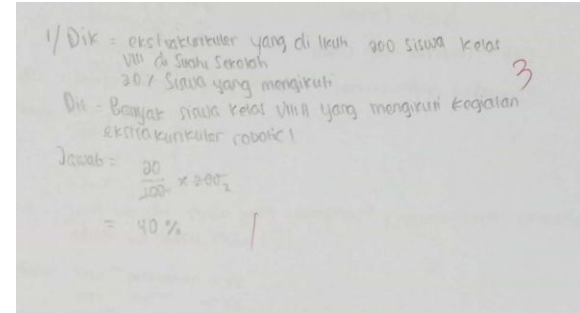 1/ Dik = ekstrakurikuler yang di ikuti 200 siswa kelas
VIII di Suatu Sekolah
20% Siswa yang mengikuti
3
Dit = Banyak siswa kelas VIII A yang mengikuti kegiatan
ekstrakurikuler robotic!
Jawab =
20
100 × 200 2
= 40 %